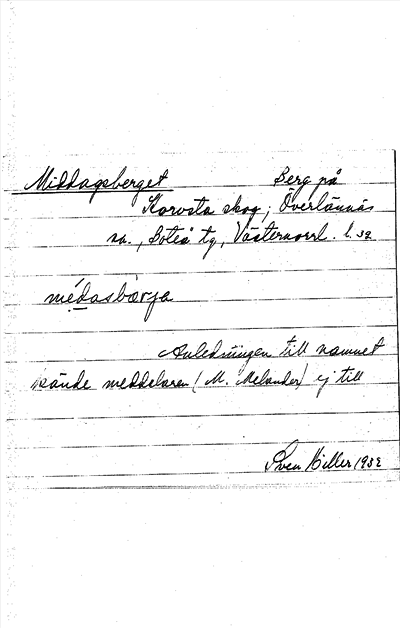 Middagsberget Berg på
Korvsta skog, Överlännäs
sn., Boteå tg, Västernorrl. l. 32
médasbærje
Anledningen till namnet
kände meddelaren (M. Melander) ej till
Sven Hiller 1932